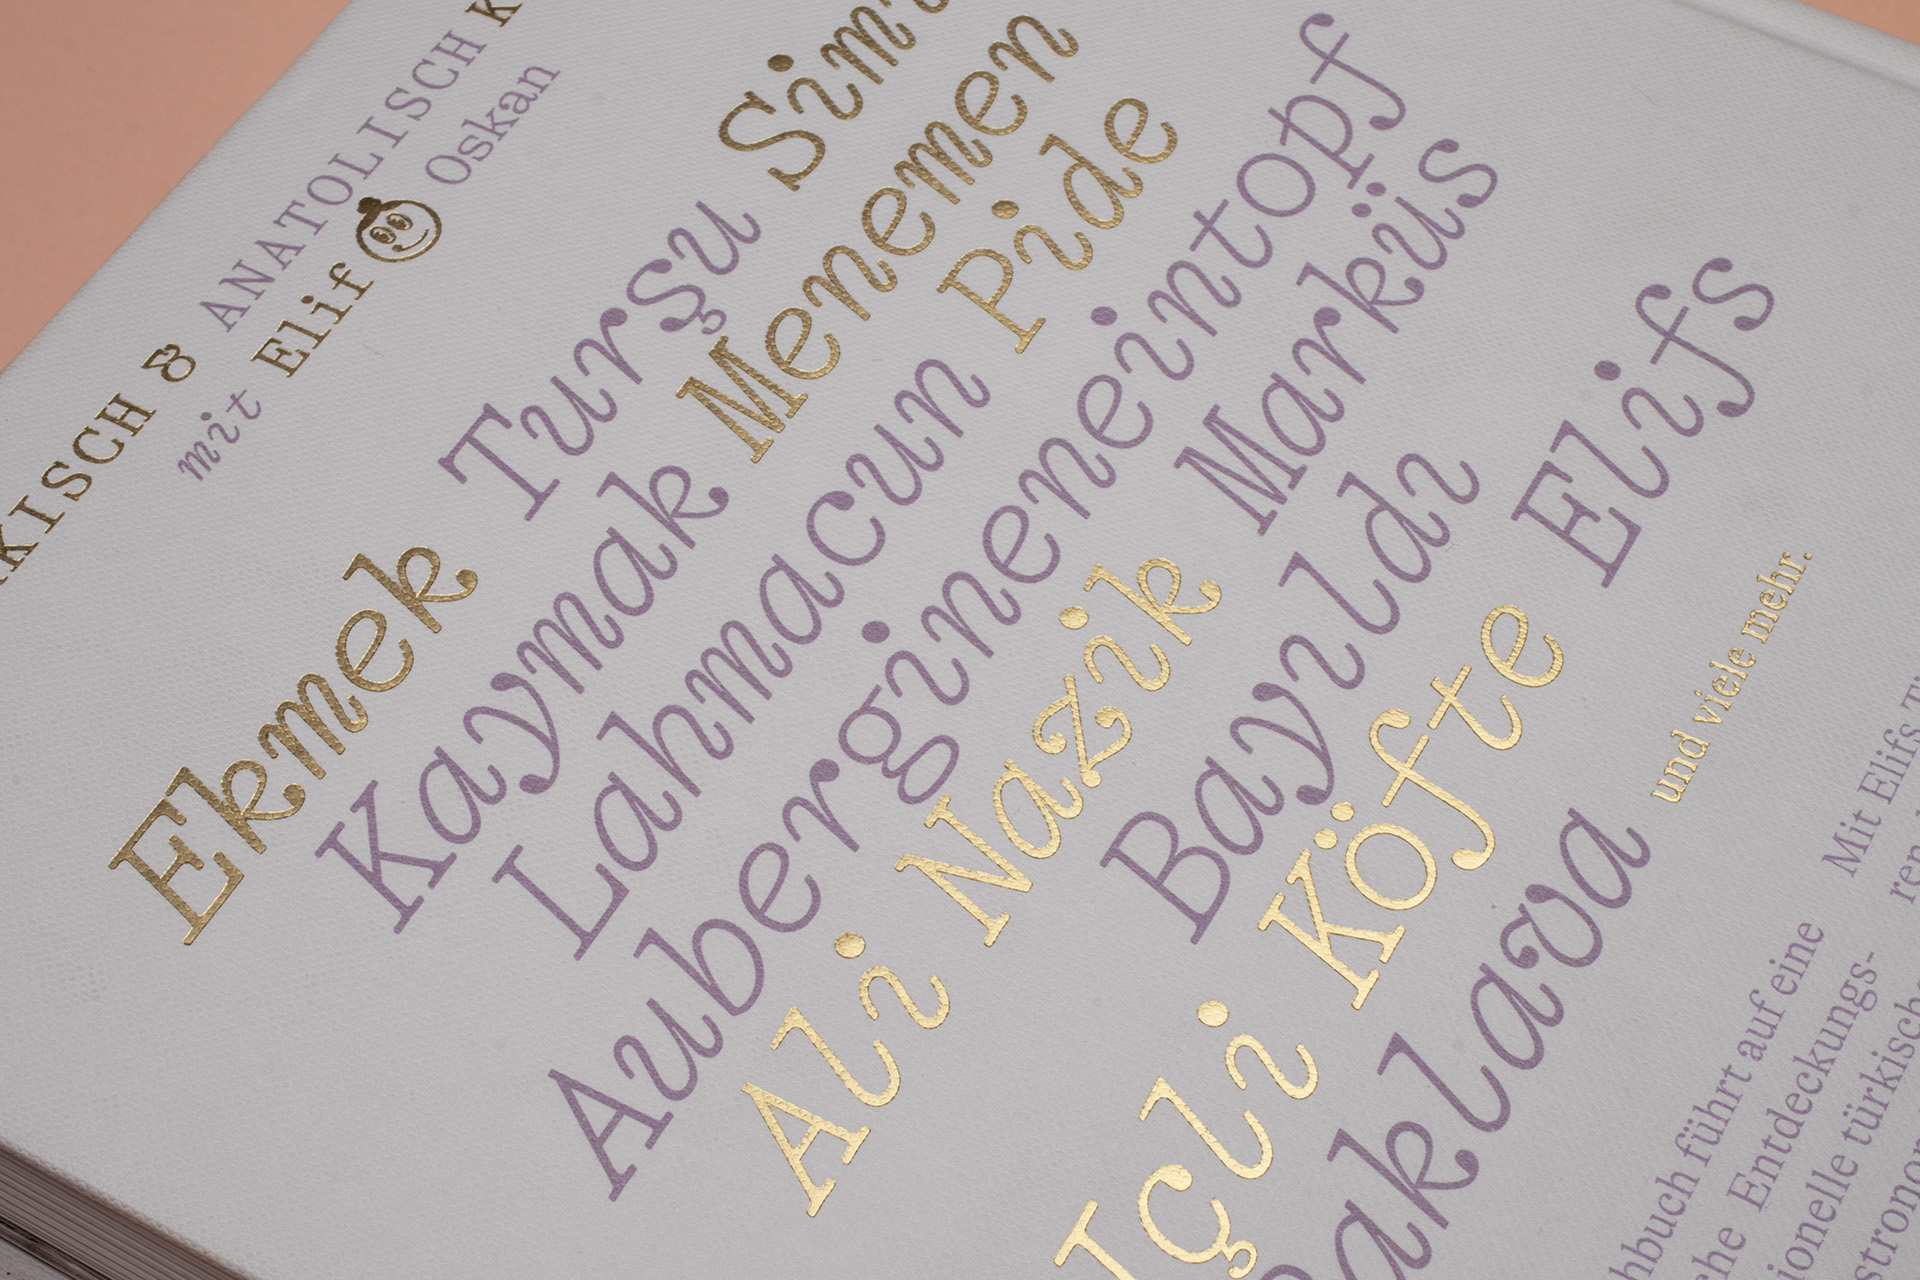 KISCH & ANATOLISCH K
mit Elif Oskan
Ekmek Turşu Simi
Kaymak Menemen
Lahmacun Pide
Aubergineneintopf
Ali Nazik Marküs
Bayıldı
Içli Köfte Elifs
Baklava und viele mehr.
hbuch führt auf eine
che Entdeckungs-
ionelle türkisch
stronom
Mit Elifs Ti
ren